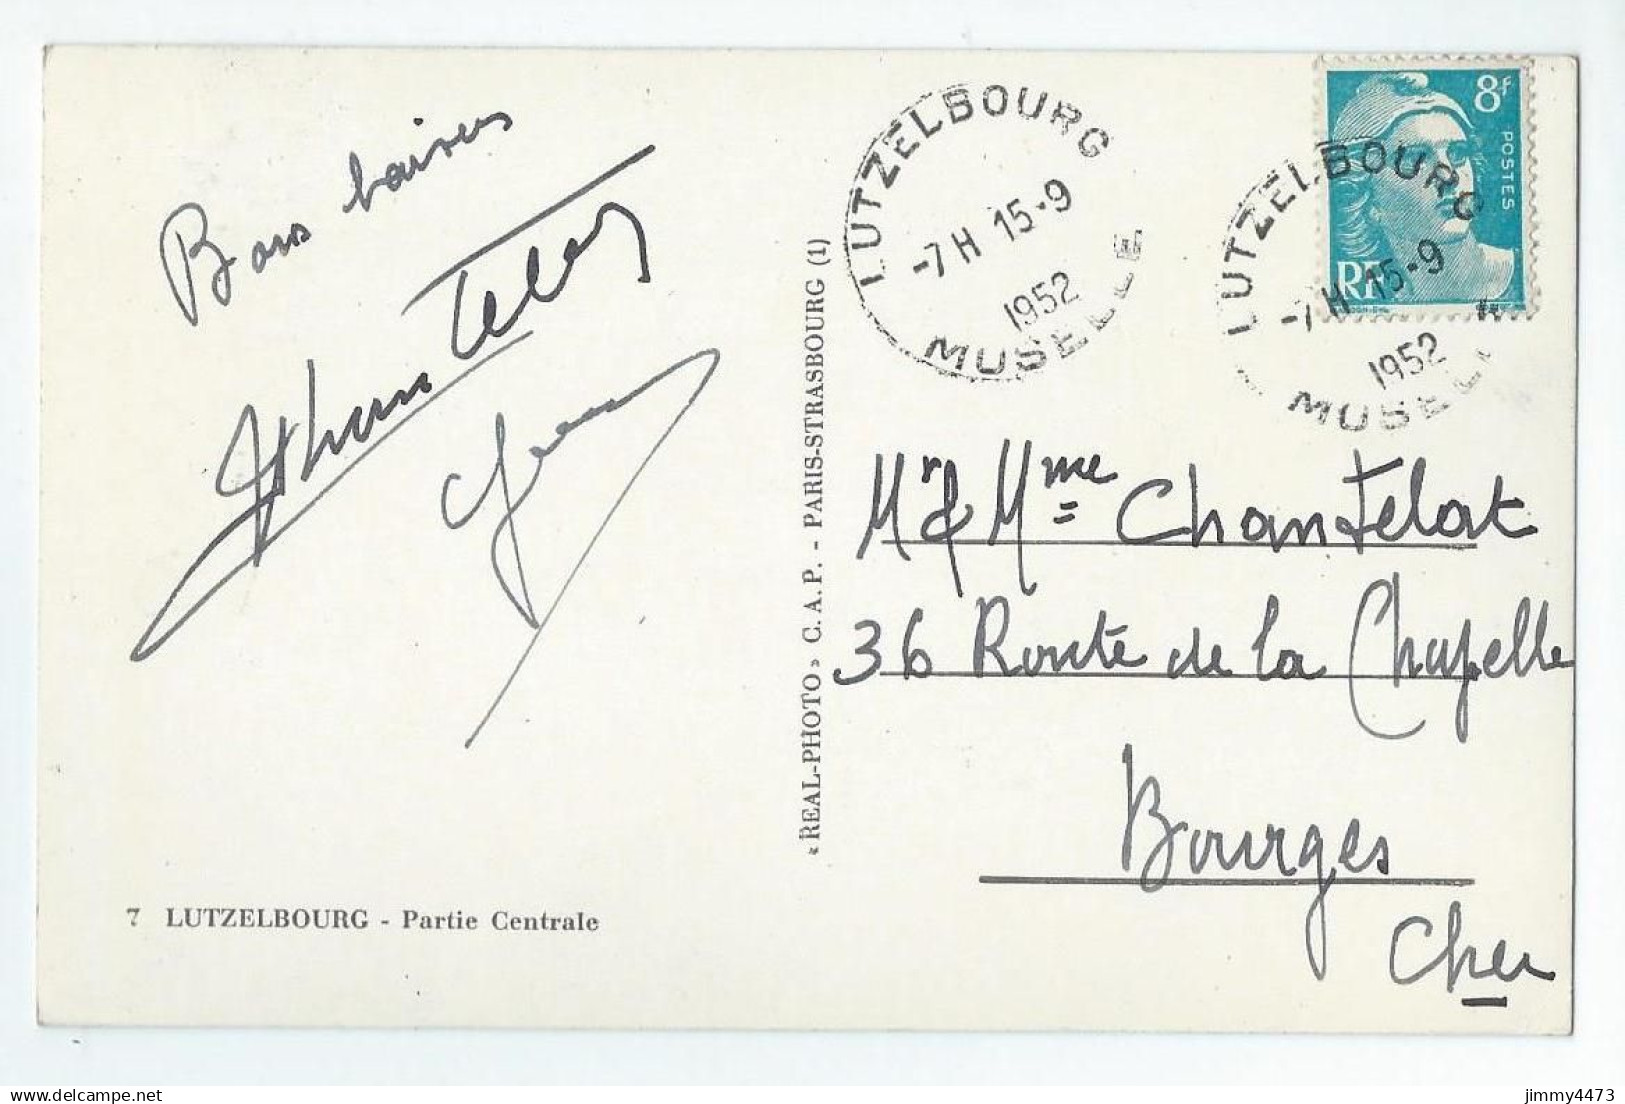 Bons baisers
7 LUTZELBOURG - Partie Centrale
« REAL-PHOTO » C. A. P. - PARIS-STRASBOURG (1)
LUTZELBOURG
-7 H 15-9
1952
MOSELLE
8F
POSTES
RF
LUTZELBOURG
-7 H 15-9
1952
MOSELLE
Mr & Mme Chantelat
36 Route de la Chapelle
Bourges
Cher
delcampe.net
jimmy4473